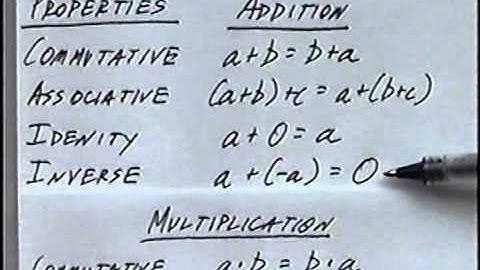 PROPERTIES ADDITION
COMMUTATIVE a+b=b+a
ASSOCIATIVE (a+b)+c=a+(b+c)
IDENITY a+0=a
INVERSE a+(-a)=0
MULTIPLICATION
COMMUTATIVE a·b=b·a